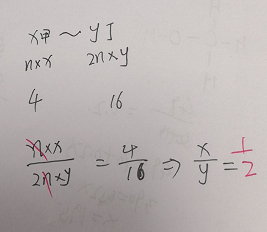 x甲 ~ y丁
n×x 2n×y
4 16
n×x/2n×y = 4/16 ⇒ x/y = 1/2